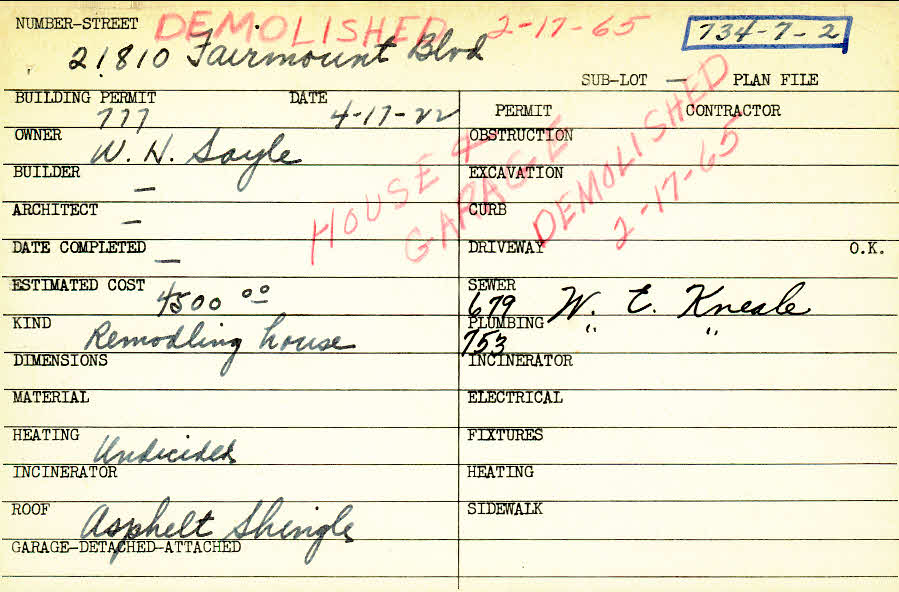 NUMBER-STREET DEMOLISHED 2-17-65 734-7-2
21810 Fairmount Blvd
SUB-LOT — PLAN FILE
BUILDING PERMIT DATE
777 4-17-22
OWNER W. H. Sayle
BUILDER —
ARCHITECT —
DATE COMPLETED —
ESTIMATED COST 4500 00
KIND Remodling house
DIMENSIONS
MATERIAL
HEATING Undicided
INCINERATOR
ROOF Asphelt Shingle
GARAGE-DETACHED-ATTACHED
HOUSE &
GARAGE
DEMOLISHED
2-17-65
PERMIT CONTRACTOR
OBSTRUCTION
EXCAVATION
CURB
DRIVEWAY O.K.
SEWER
679 W. E. Kneale
PLUMBING " "
753
INCINERATOR
ELECTRICAL
FIXTURES
HEATING
SIDEWALK